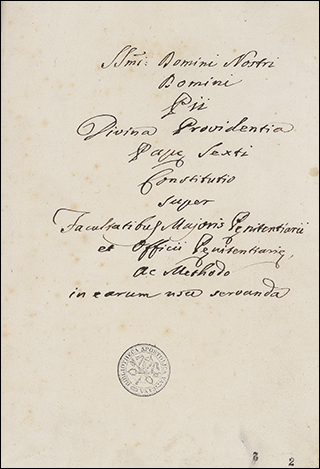 SSmi: Domini Nostri
Domini
Pii
Divina Providentia
Papæ Sexti
Constitutio
super
Facultatibus Majoris Pænitentiarii
et Officii Pænitentiariæ,
ac Methodo
in earum usu servanda
BIBLIOTECA APOSTOLICA VATICANA
2